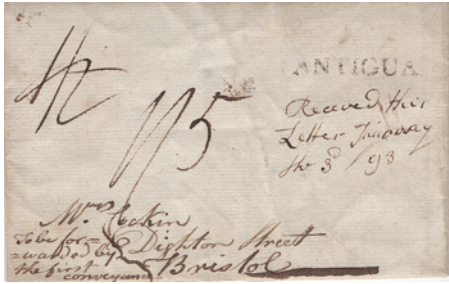 ANTIGUA
Receved this
Letter
the 3d /93
Mrs Eakin
Dighton Street
Bristol
To be for=
=warded by
the first
conveyance